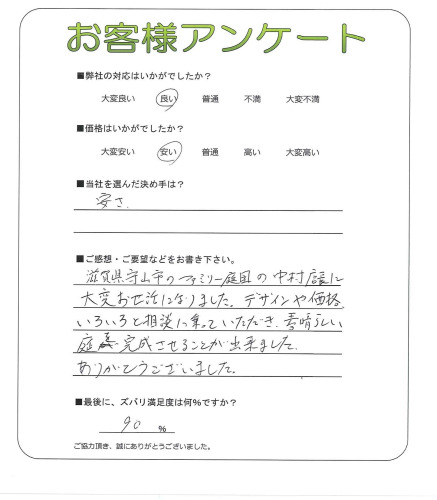 お客様アンケート
■弊社の対応はいかがでしたか？
大変良い 良い 普通 不満 大変不満
■価格はいかがでしたか？
大変安い 安い 普通 高い 大変高い
■当社を選んだ決め手は？
安さ
■ご感想・ご要望などをお書き下さい。
滋賀県守山市のファミリー庭園の中村店長に
大変お世話になりました。デザインや価格、
いろいろと相談に乗っていただき、素晴らしい
庭 完成させることが出来ました。
ありがとうございました。
■最後に、ズバリ満足度は何％ですか？
90 ％
ご協力頂き、誠にありがとうございました。